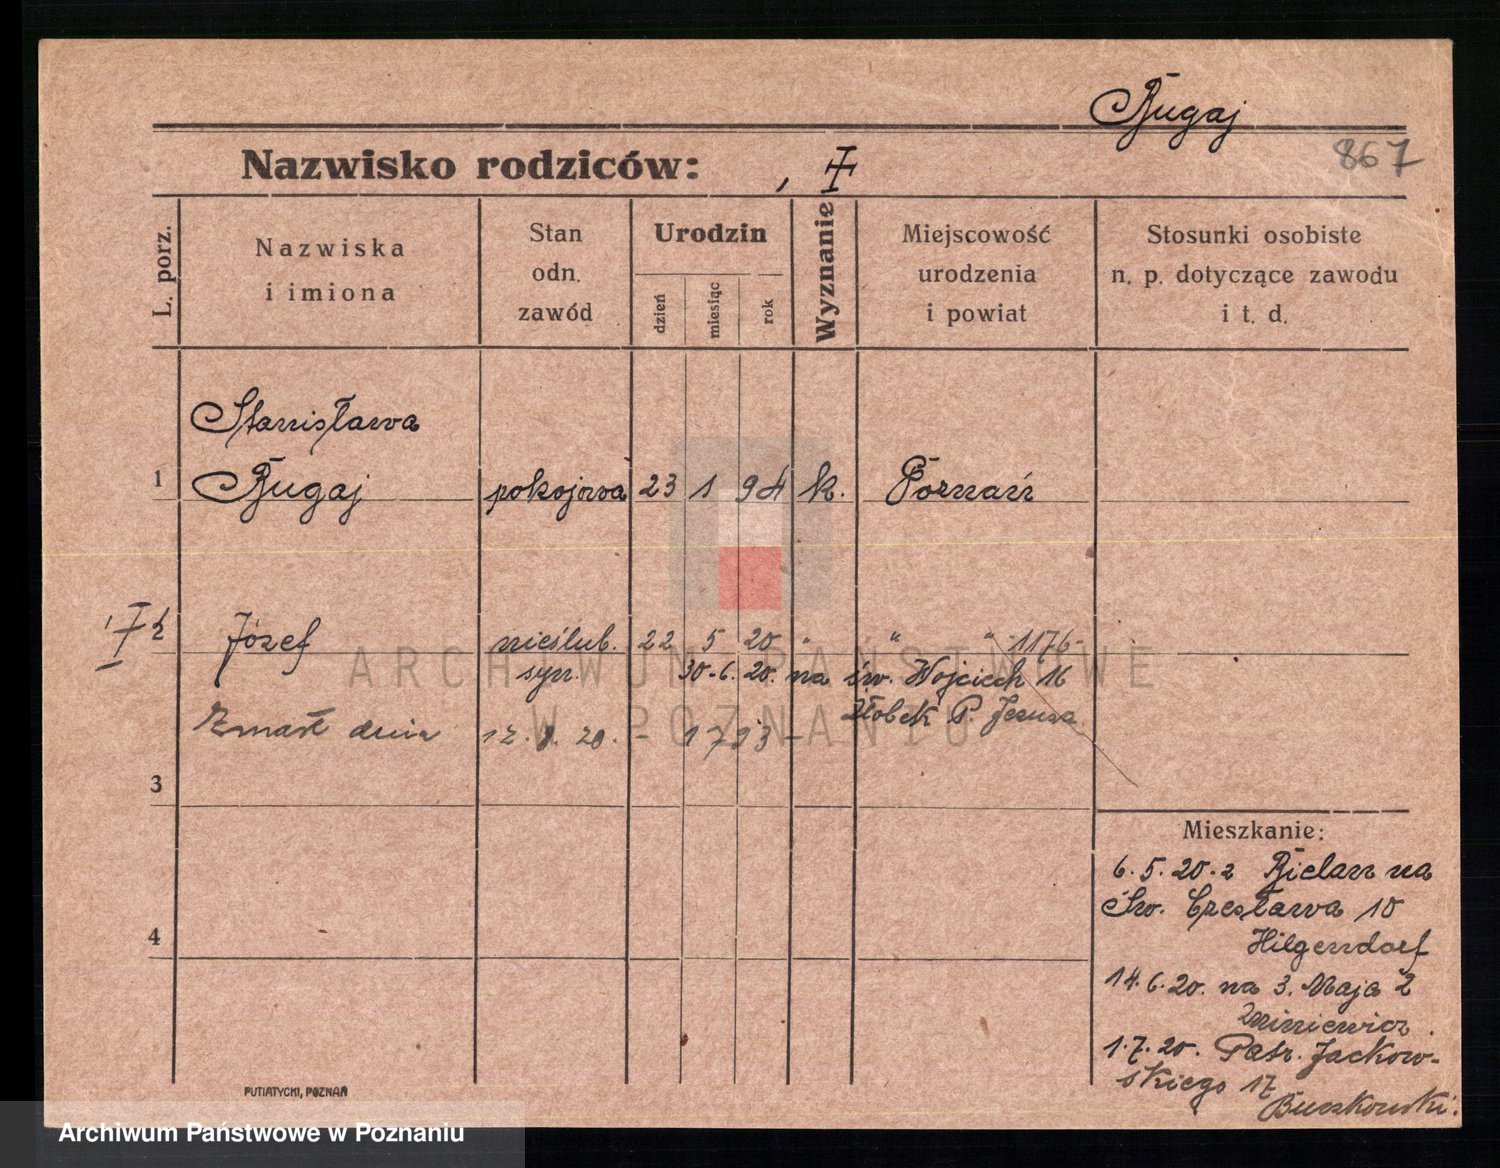 Bugaj
867
Nazwisko rodziców:
L. porz.
Nazwiska
i imiona
Stan
odn.
zawód
Urodzin
dzień
miesiąc
rok
Wyznanie
Miejscowość
urodzenia
i powiat
Stosunki osobiste
n. p. dotyczące zawodu
i t. d.
Stanisława
1 Bugaj pokojowa 23 1 94 k. Poznań
2 Józef nieślub. 22 5 20 " " " 1176
syn. 30-6. 20. na św. Wojciech 16
Żłobek P. Jezusa
Zmarł dnia 12. 9. 20. - 1713 -
3
4
Mieszkanie:
6. 5. 20. z Bielan na
Św. Czesława 10
Hilgendorf
14. 6. 20. na 3. Maja 2
1. 7. 20. Patr. Jackow-
skiego 17
Buczkowski.
PUTIATYCKI, POZNAŃ
ARCHIWUM PAŃSTWOWE
W POZNANIU
Archiwum Państwowe w Poznaniu